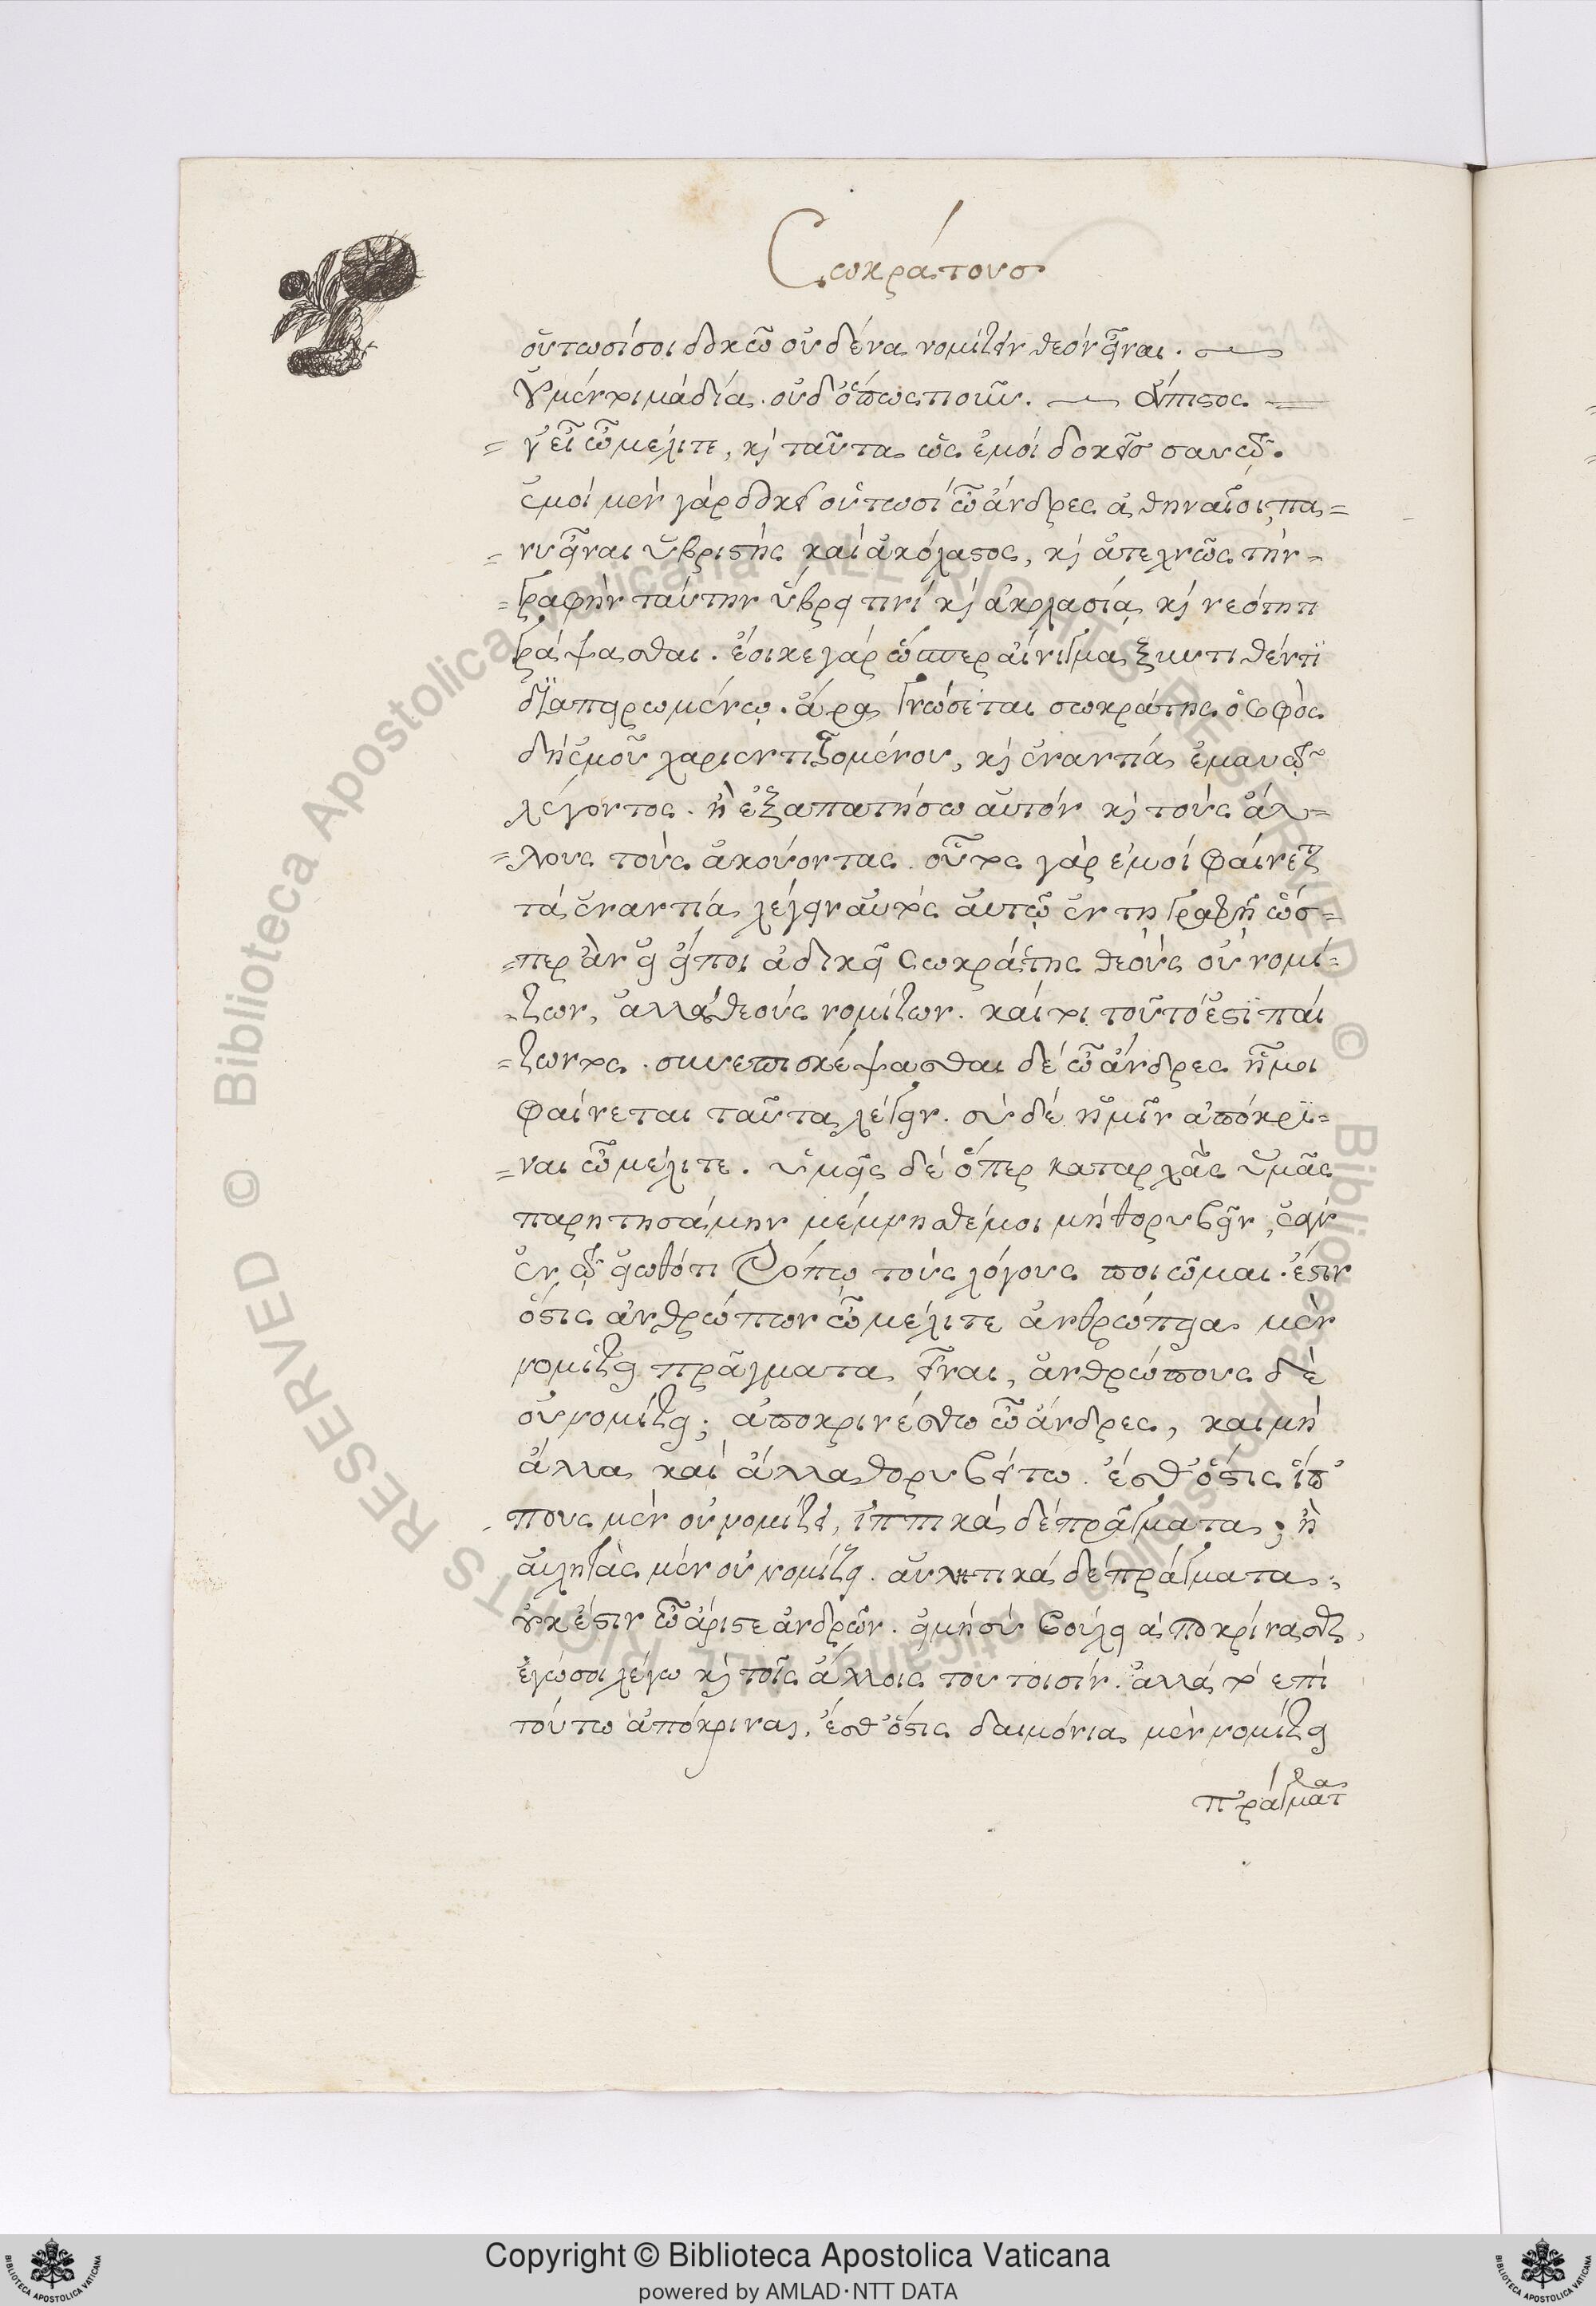 Σωκράτους
οὑτωσί σοι δοκῶ οὐδένα νομίζειν θεὸν εἶναι.
οὐ μέντοι μὰ δία. οὐδ' ὁπωστιοῦν. ἄπιστος
γ' εἶ ὦ μέλιτε, καὶ ταῦτα ὡς ἐμοὶ δοκεῖς σαυτῷ.
ἐμοὶ μὲν γὰρ δοκεῖ οὑτωσί ὦ ἄνδρες ἀθηναῖοι, πα=
=νυ εἶναι ὑβριστὴς καὶ ἀκόλαστος, καὶ ἀτεχνῶς τὴν=
=γραφὴν ταύτην ὕβρει τινί καὶ ἀκολασίᾳ καὶ νεότητι
γράψασθαι. ἔοικε γὰρ ὥσπερ αἴνιγμα ξυντιθέντι
διαπειρωμένῳ. ἆρα γνώσεται σωκράτης ὁ σοφὸς
δὴ ἐμοῦ χαριεντιζομένου, καὶ ἐναντία ἐμαυτῷ
λέγοντος. ἢ ἐξαπατήσω αὐτόν καὶ τοὺς ἄλ=
=λους τοὺς ἀκούοντας. οὗτος γὰρ ἐμοί φαίνεται
τὰ ἐναντία λέγειν αὐτὸς αὑτῷ ἐν τῇ γραφῇ ὥσ=
=περ ἂν εἰ εἴποι ἀδικεῖ σωκράτης θεοὺς οὐ νομί=
ζων, ἀλλὰ θεοὺς νομίζων. καίτοι τοῦτό ἐστι παί
=ζοντος. συνεπισκέψασθαι δέ ὦ ἄνδρες ᾗ μοι
φαίνεται ταῦτα λέγειν. σὺ δέ ἡμῖν ἀπόκρι=
=ναι ὦ μέλιτε. ὑμεῖς δέ ὅπερ καταρχὰς ὑμᾶς
παρῃτησάμην μέμνησθέ μοι μὴ θορυβεῖν, ἐὰν
ἐν τῷ εἰωθότι τρόπῳ τοὺς λόγους ποιῶμαι. ἔστιν
ὅστις ἀνθρώπων ὦ μέλιτε ἀνθρώπεια μὲν
νομίζει πράγματα εἶναι, ἀνθρώπους δὲ
οὐ νομίζει; ἀποκρινέσθω ὦ ἄνδρες, καὶ μὴ
ἄλλα καὶ ἄλλα θορυβείτω. ἔσθ' ὅστις ἵπ
πους μὲν οὐ νομίζει, ἱππικά δὲ πράγματα; ἢ
αὐλητὰς μὲν οὐ νομίζει. αὐλητικά δὲ πράγματα;
οὐκ ἔστιν ὦ ἄριστε ἀνδρῶν. εἰ μὴ σὺ βούλει ἀποκρίνασθαι,
ἐγώ σοι λέγω καὶ τοῖς ἄλλοις τουτοισίν. ἀλλὰ τὸ ἐπὶ
τούτω ἀπόκριναι, ἔσθ' ὅστις δαιμόνια μὲν νομίζει
πράγματα
Copyright © Biblioteca Apostolica Vaticana
powered by AMLAD·NTT DATA